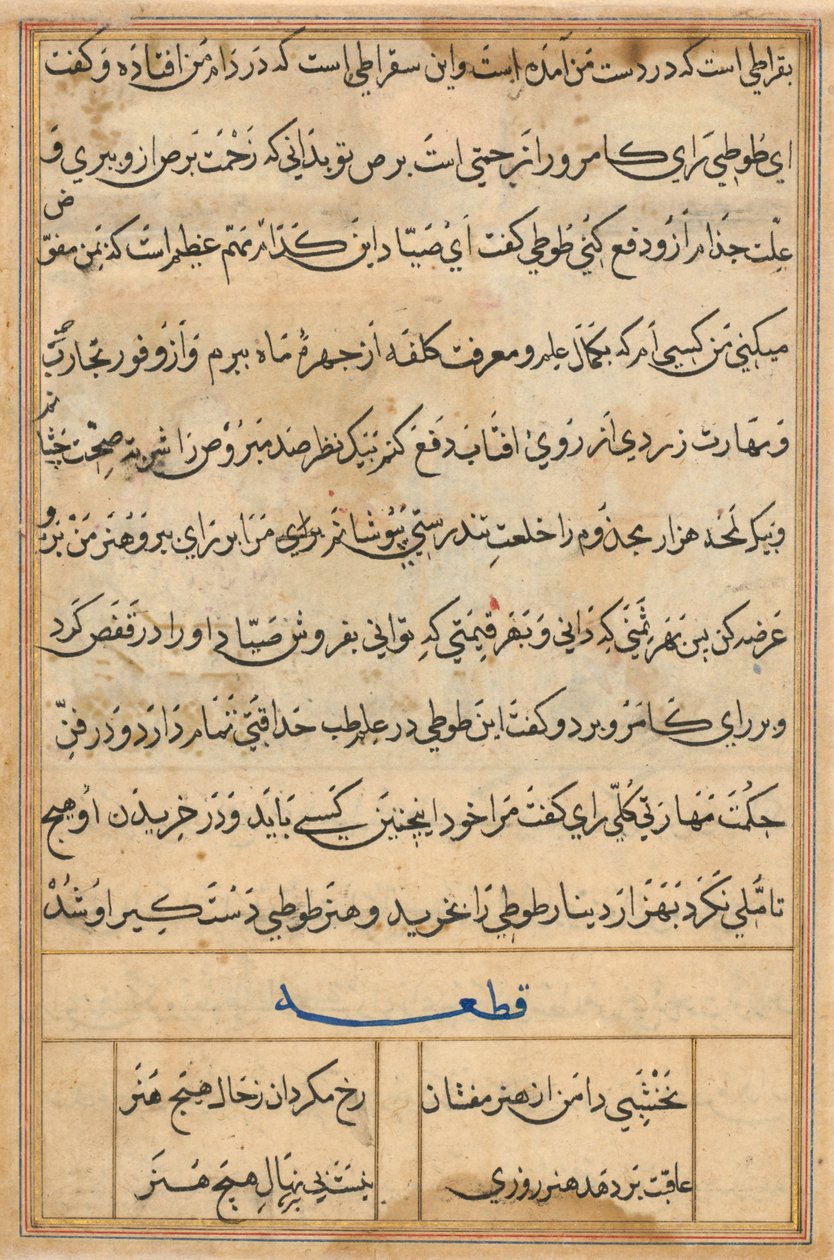 بقراطی است که در دست من آمده است و این سقراطی است که در دام من افتاده و کفت
ای طوطی رای کامرو را زحمتی است برص تو بدانی که زحمت برص ازو ببری و
علت جذام ازو دفع کنی طوطی کفت ای صیاد این کدام مهم عظیم است که بمن مفوض
میکنی من کسی ام که بکمال علم و معرفت کلفه از چهرهٔ ماه ببرم و از وفور تجارب
و مهارت زردی از روی افتاب دفع کنم بیک نظر صد مبروص را شربت صحت چشانم
و بیک لمحه هزار مجذوم را خلعت تندرستی پوشانم مرا بر رای ببر و هنر من برو
عرضه کن پس بهر ثمنی که دانی و بهر قیمتی که توانی بفروش صیاد او را در قفص کرد
و بر رای کامرو برد و کفت این طوطی در علم طب حذاقتی تمام دارد و در فن
حکمت مهارتی کلی رای کفت مرا خود اینچنین کسی باید و در خریدن او هیچ
تاملی نکرد بهزار دینار طوطی را بخرید و هنر طوطی دست کیر او شد
قطعه
نخشبی دامن از هنر مفشان رخ مکردان ز حال هیچ هنر
عاقبت بر دهد هنر روزی نیست بی بر نهال هیچ هنر